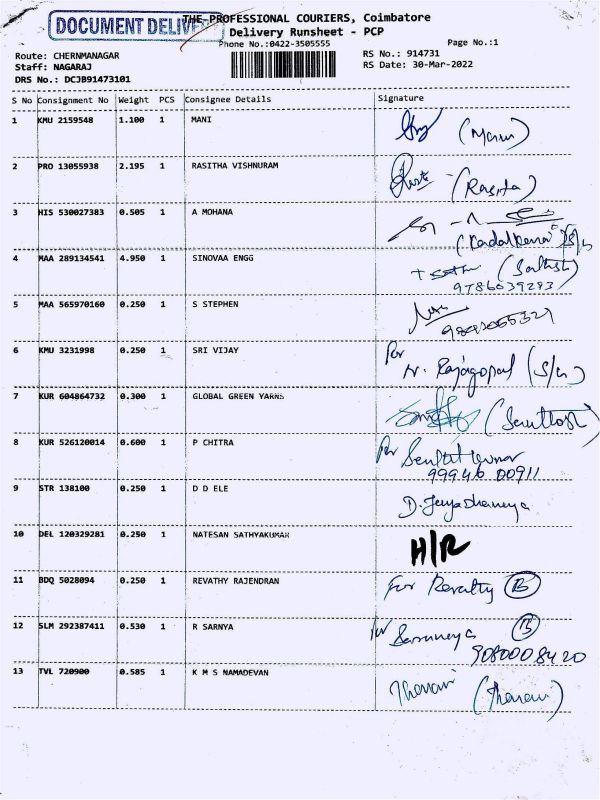 DOCUMENT DELIVERED
THE PROFESSIONAL COURIERS, Coimbatore
Delivery Runsheet - PCP
Phone No.:0422-3505555
Page No.:1
Route: CHERNMANAGAR
RS No.: 914731
Staff: NAGARAJ
RS Date: 30-Mar-2022
DRS No.: DCJB91473101
S No Consignment No Weight PCS Consignee Details Signature
1 KMU 2159548 1.100 1 MANI
2 PRO 13055938 2.195 1 RASITHA VISHNURAM (Rasita)
3 HIS 530027383 0.505 1 A MOHANA
4 MAA 289134541 4.950 1 SINOVAA ENGG (Sathish)
9786039293
5 MAA 565970160 0.250 1 S STEPHEN
6 KMU 3231998 0.250 1 SRI VIJAY for
N. Rajagopal (S/n)
7 KUR 604864732 0.300 1 GLOBAL GREEN YARNS (Santhosh)
8 KUR 526120014 0.600 1 P CHITRA for
Senthil kumar
99946 00911
9 STR 138100 0.250 1 D D ELE D. Jeyadhaneya
10 DEL 120329281 0.250 1 NATESAN SATHYAKUMAR H/R
11 BDQ 5028094 0.250 1 REVATHY RAJENDRAN For Revathy B
12 SLM 292387411 0.530 1 R SARNYA for Saranya B
9080008420
13 TVL 720900 0.585 1 K M S NAMADEVAN Tharani (Tharani)